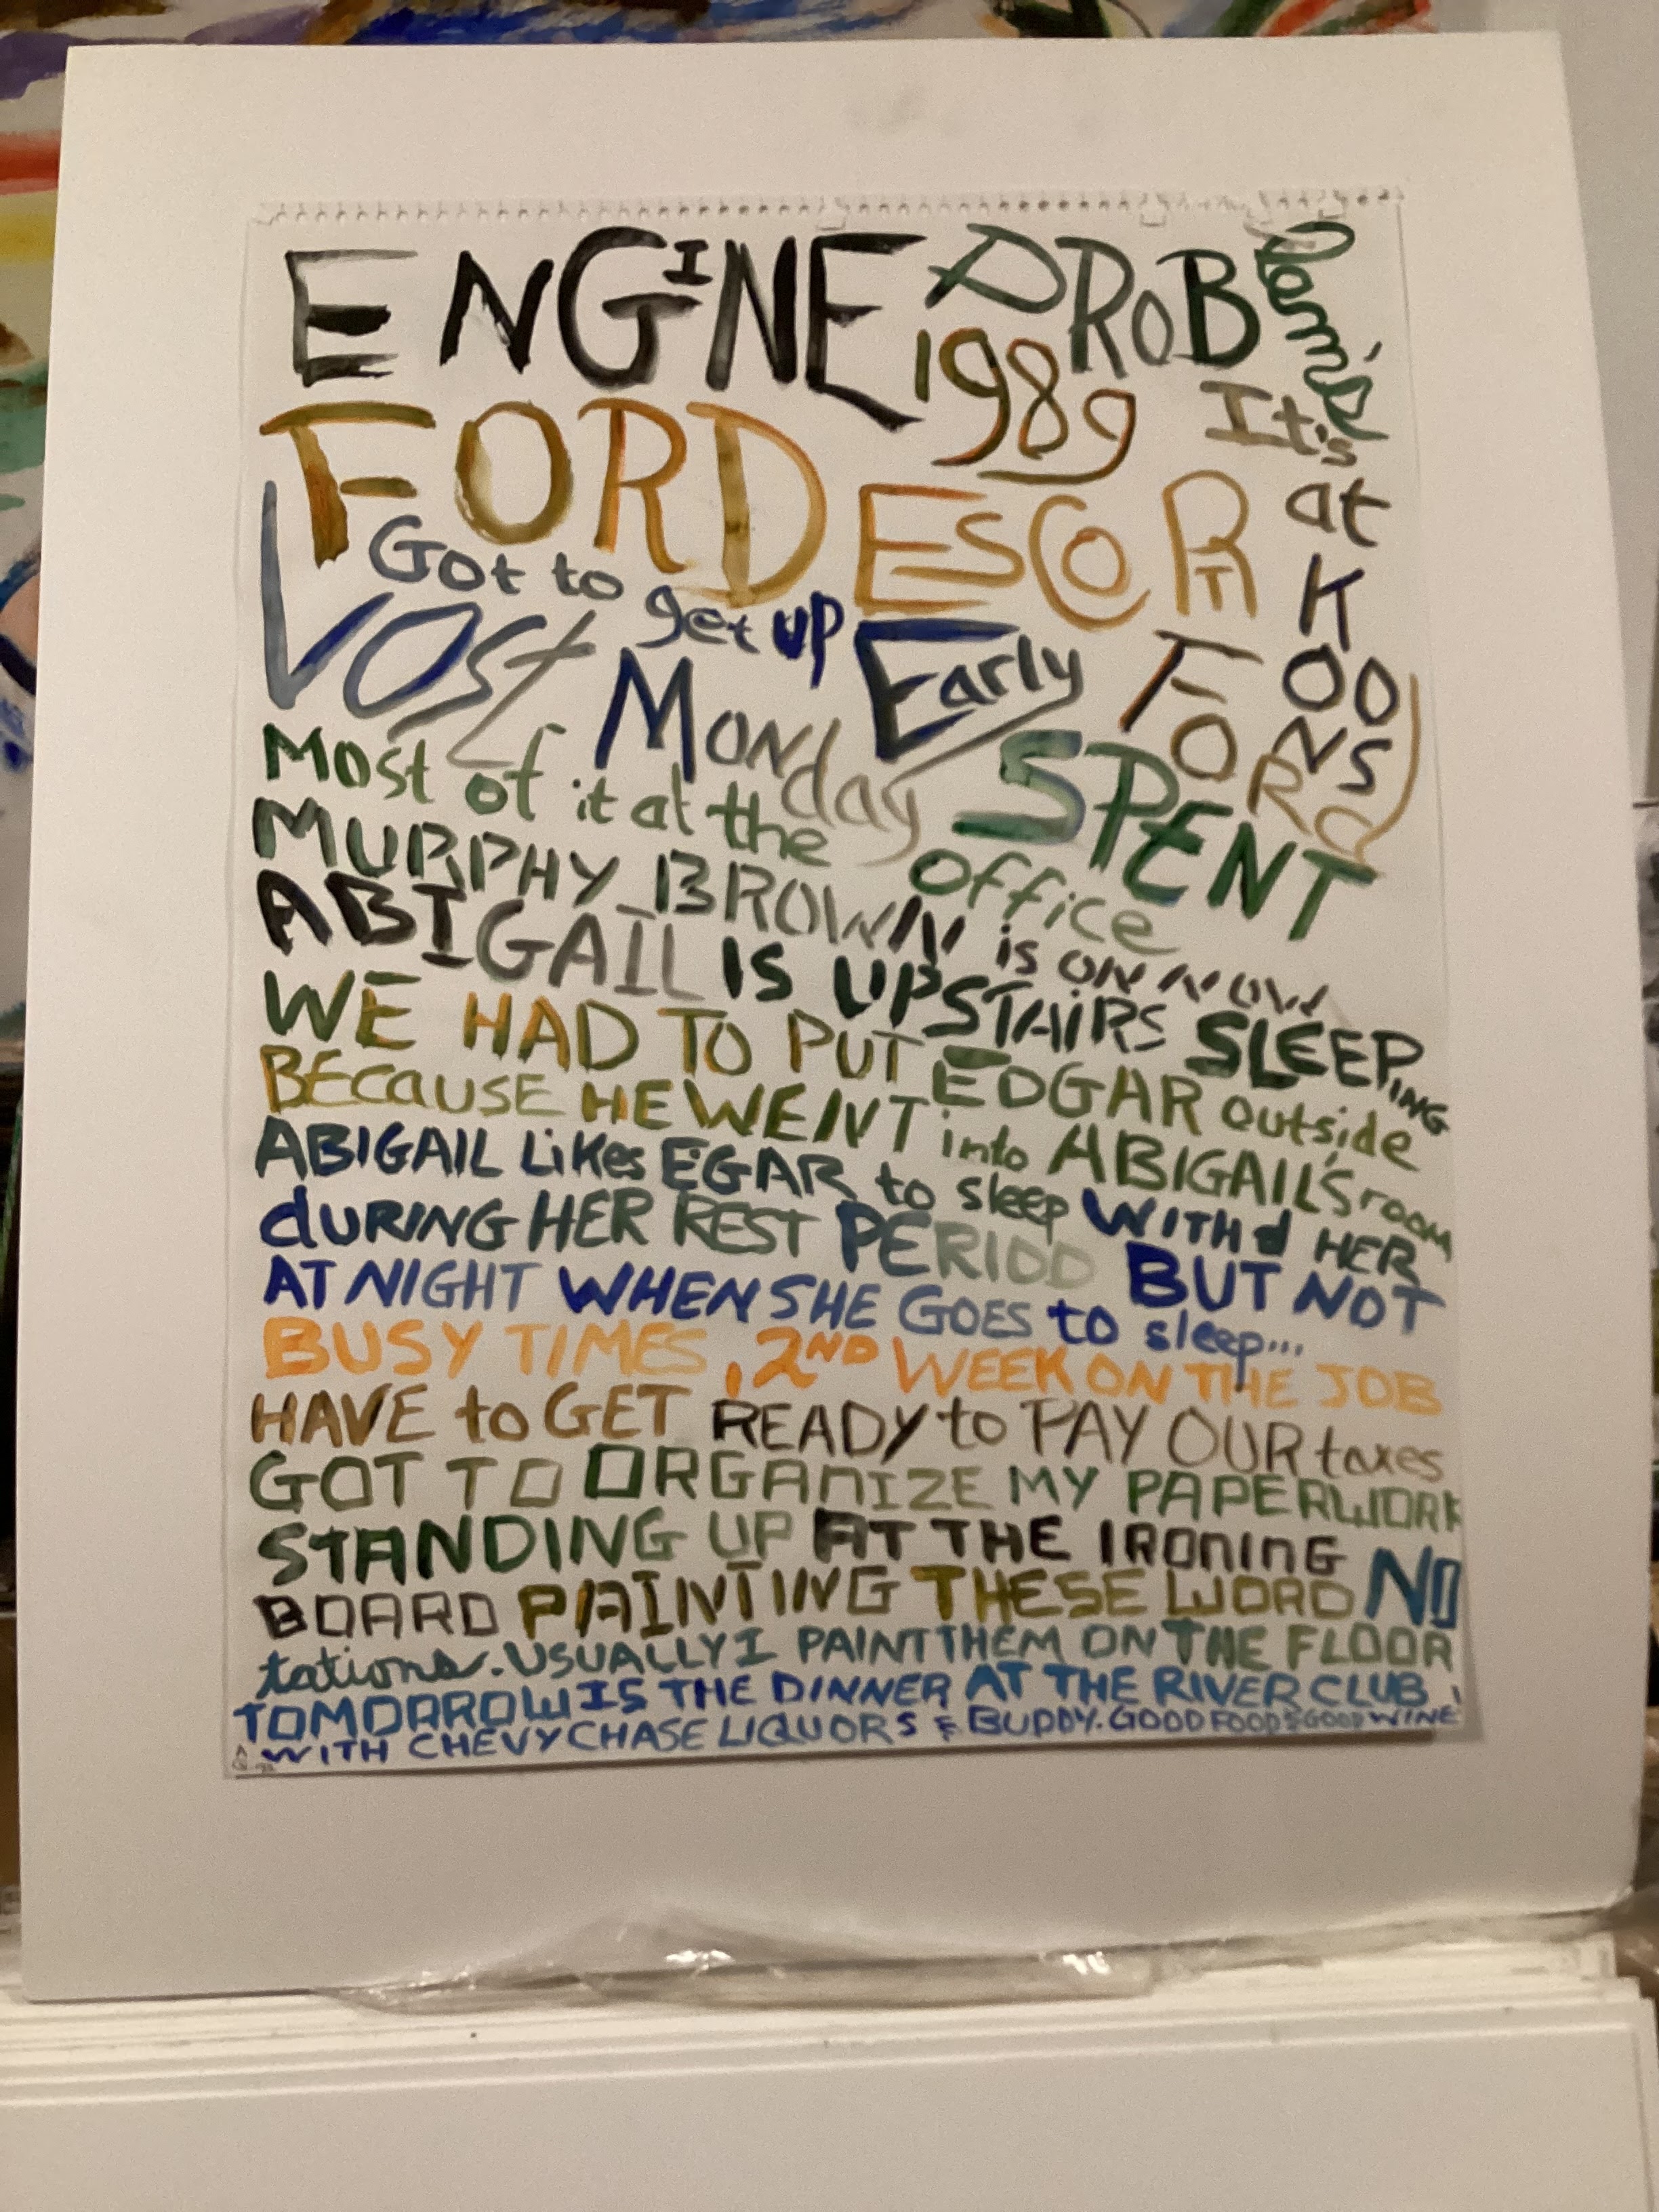 ENGINE PROBlem's
1989
FORD ESCORT
It's
at
KOONS
FORD
Got to get up Early
LOST MONday SPENT
Most of it at the office
MURPHY BROWN is ON NOW
ABIGAIL IS UPSTAIRS SLEEPING
WE HAD TO PUT EDGAR outside
BECAUSE HE WENT into ABIGAIL'S room
ABIGAIL Likes EGAR to sleep WITH HER
dURING HER REST PERIOD BUT NOT
AT NIGHT WHEN SHE GOES to sleep...
BUSY TIMES, 2ND WEEK ON THE JOB
HAVE to GET READY to PAY OUR taxes
GOT TO ORGANIZE MY PAPERWORK
STANDING UP AT THE IRONING
BOARD PAINTING THESE WORD NO
tations. USUALLY I PAINT THEM ON THE FLOOR
TOMORROW IS THE DINNER AT THE RIVER CLUB,
WITH CHEVY CHASE LIQUORS & BUDDY. GOOD FOOD & GOOD WINE